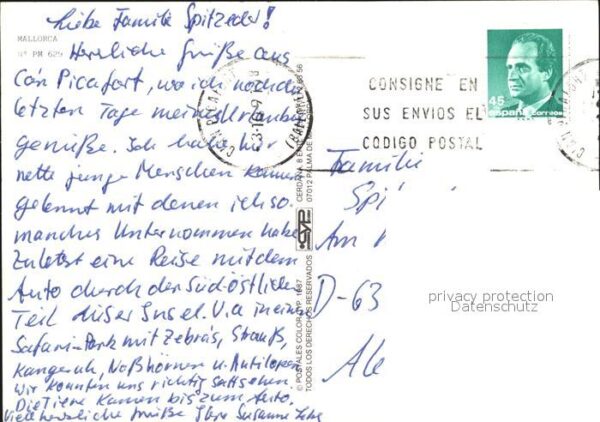 Liebe Familie Spitzeder!
MALLORCA
Nº PM 629
Herzliche Grüße aus
Can Picafort, wo ich noch die
letzten Tage meines Urlaubes
genieße. Ich habe hier
nette junge Menschen kennen
gelernt mit denen ich so
manches Unternommen habe
Zuletzt eine Reise mit dem
Auto durch der Südöstlichen
Teil dieser Insel. U.a in einen
Safari-Park mit Zebras, Strauß,
Känguruh, Naßhörnern u. Antilopen
Wir konnten uns richtig sattsehen.
Die Tiere kamen bis zum Auto.
Viele herzliche Grüße Ihre Susanne
© POSTALES COLOR CYP, 1987
TODOS LOS DERECHOS RESERVADOS
CYP
07012 PALMA DE
CAN PICAFORT
(BALEARES)
CONSIGNE EN
SUS ENVIOS EL
CODIGO POSTAL
45
España correos
Familie
Spi
Am
D-63
privacy protection
Datenschutz